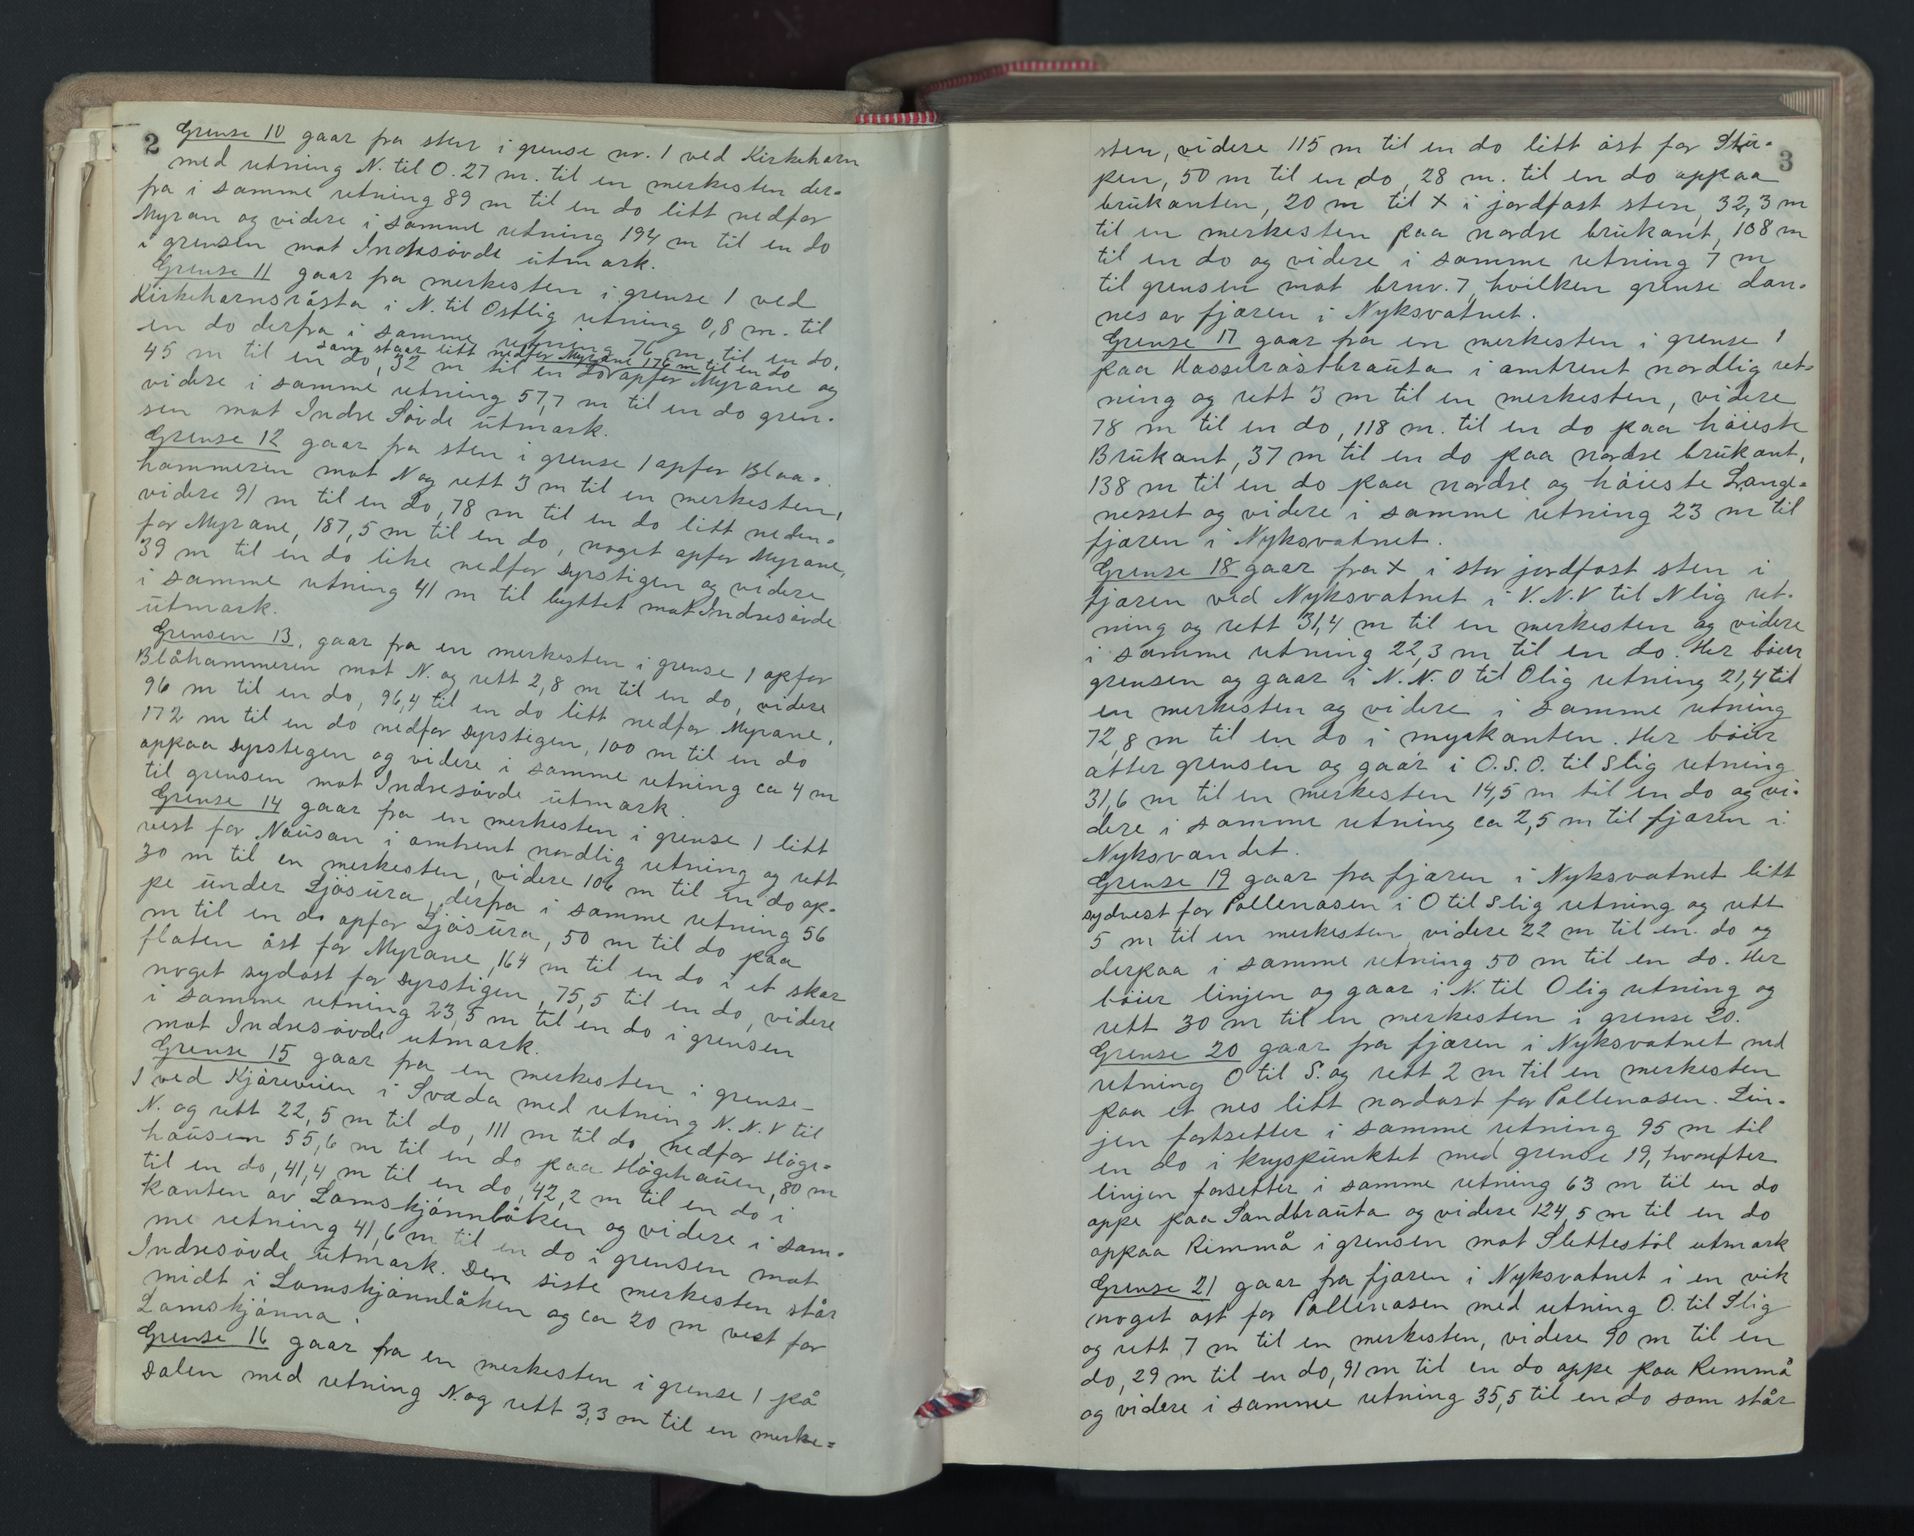 2
Grense 10 gaar fra sten i grense nr. 1 ved Kirkehavn
med retning N. til O. 27 m. til en merkesten der-
fra i samme retning 89 m til en do litt nedfor
Myran og videre i samme retning 194 m til en do
i grensen mot Indresövde ütmark.
Grense 11 gaar fra merkesten i grense 1 ved
Kirkehavnsråsta i N. til Ostlig retning 0,8 m. til
en do derfra i samme retning 76 m til en do,
som staar litt nedfor Myrane 176 m til en do
45 m til en do, 32 m til en do opfor Myrane og
videre i samme retning 57,7 m til en do gren-
sen mot Indre Sövde ütmark.
Grense 12 gaar fra sten i grense 1 opfor Blaa-
hammeren mot N og rett 3 m til en merkesten,
videre 91 m til en do, 78 m til en do litt neden-
for Myrane, 187,5 m til en do, noget opfor Myrane,
39 m til en do like nedfor Dyrstigen og videre
i samme retning 41 m til byttet mot Indresövde
ütmark.
Grensen 13, gaar fra en merkesten i grense 1 opfor
Blåhammeren mot N. og rett 2,8 m til en do, videre
96 m til en do, 96,4 til en do litt nedfor Myrane,
172 m til en do nedfor Dyrstigen, 100 m til en do
oppaa Dyrstegen og videre i samme retning ca 4 m
til grensen mot Indresövde ütmark.
Grense 14 gaar fra en merkesten i grense 1 litt
vest for Naüsan i omtrent nordlig retning og rett
30 m til en merkesten, videre 106 m til en do op-
pe ünder Ljösüra, derfra i samme retning 56
m til en do opfor Ljösüra, 50 m til do paa
flaten öst for Myrane, 164 m til en do i et skar
noget sydöst for Dyrstigen, 75,5 til en do, videre
i samme retning 23,5 m til en do i grensen
mot Indresövde utmark.
Grense 15 gaar fra en merkesten i grense
1 ved Kjöreveien i Svæda med retning N. N. V til
N. og rett 22,5 m til do, 111 m til do nedfor Höge-
haüsen 55,6 m til en do paa Högehaüen, 80 m
til en do, 41,4 m til en do, 42,2 m til en do i
kanten av Lomskjönnlöken og videre i sam-
me retning 41,6 m til en do i grensen mot
Indresövde ütmark. Den siste merkesten står
midt i Lomskjönnlåken og ca 20 m vest for
Lomskjönna.
Grense 16 gaar fra en merkesten i grense 1 på
Dalen med retning N. og rett 3,3 m til en merke-
3
sten, videre 115 m til en do litt öst for Stü-
pen, 50 m til en do, 28 m. til en do oppaa
brükanten, 20 m til x i jordfast sten, 32,3 m
til en merkesten paa nordre brükant, 108 m
til en do og videre i samme retning 7 m
til grensen mot brnr. 7, hvilken grense dan-
nes av fjæren i Nyksvatnet.
Grense 17 gaar fra en merkesten i grense 1
paa Hasselråstbraüta i omtrent nordlig ret-
ning og rett 3 m til en merkesten, videre
78 m til en do, 118 m. til en do paa höieste
Brükant, 37 m til en do paa nordre brükant,
138 m til en do paa nordre og höieste Lange-
nesset og videre i samme retning 23 m til
fjæren i Nyksvatnet.
Grense 18 gaar fra x i stor jordfast sten i
fjæren ved Nyksvatnet i V. N. V til N lig ret-
ning og rett 31,4 m til en merkesten og videre
i samme retning 22,3 m til en do. Her böier
grensen og gaar i N. N. O til Olig retning 21,4 til
en merkesten og videre i samme retning
72,8 m til en do i myrkanten. Her böier
atter grensen og gaar i O. S. O. til Slig retning
31,6 m til en merkesten 14,5 m til en do og vi-
dere i samme retning ca 2,5 m til fjæren i
Nyksvandet.
Grense 19 gaar fra fjæren i Nyksvatnet litt
sydvest for Pollenosen i O til Slig retning og rett
5 m til en merkesten, videre 22 m til en do og
derpaa i samme retning 50 m til en do. Her
böier linjen og gaar i N. til Olig retning og
rett 30 m til en merkesten i grense 20.
Grense 20 gaar fra fjæren i Nyksvatnet med
retning O til S. og rett 2 m til en merkesten
paa et nes litt nordost for Pollenosen. Lin-
jen fortsetter i samme retning 95 m til
en do i kryspünktet med grense 19, hvorefter
linjen forsetter i samme retning 63 m til en do
oppe paa Sandbraüta og videre 124,5 m til en do
oppaa Rimmå i grensen mot Slettestöl utmark
Grense 21 gaar fra fjæren i Nyksvatnet i en vik
noget ost for Pollenosen med retning O. til Slig
og rett 7 m til en merkesten, videre 90 m til en
do, 29 m til en do, 91 m til en do oppe paa Remmå
og videre i samme retning 35,5 til en do som står